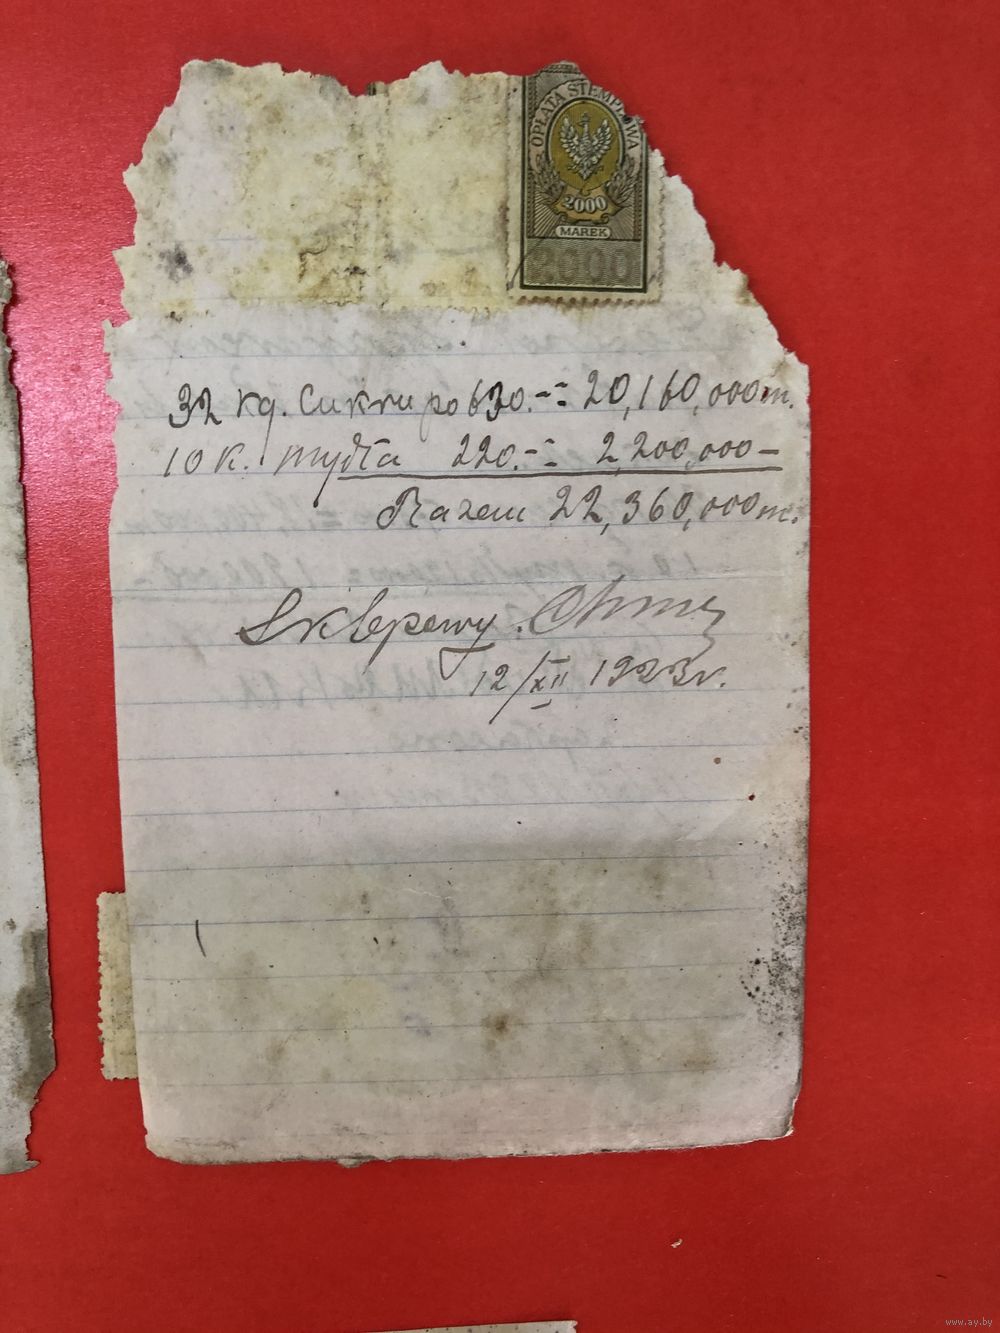 OPŁATA STEMPLOWA
2000
MAREK
2000
32 kg. Cukru po 630.-= 20,160,000 m.
10 k. mydła 220.-= 2,200,000-
Razem 22,360,000 m.
Sklepowy.
12/XII 1923 r.
www.ay.by